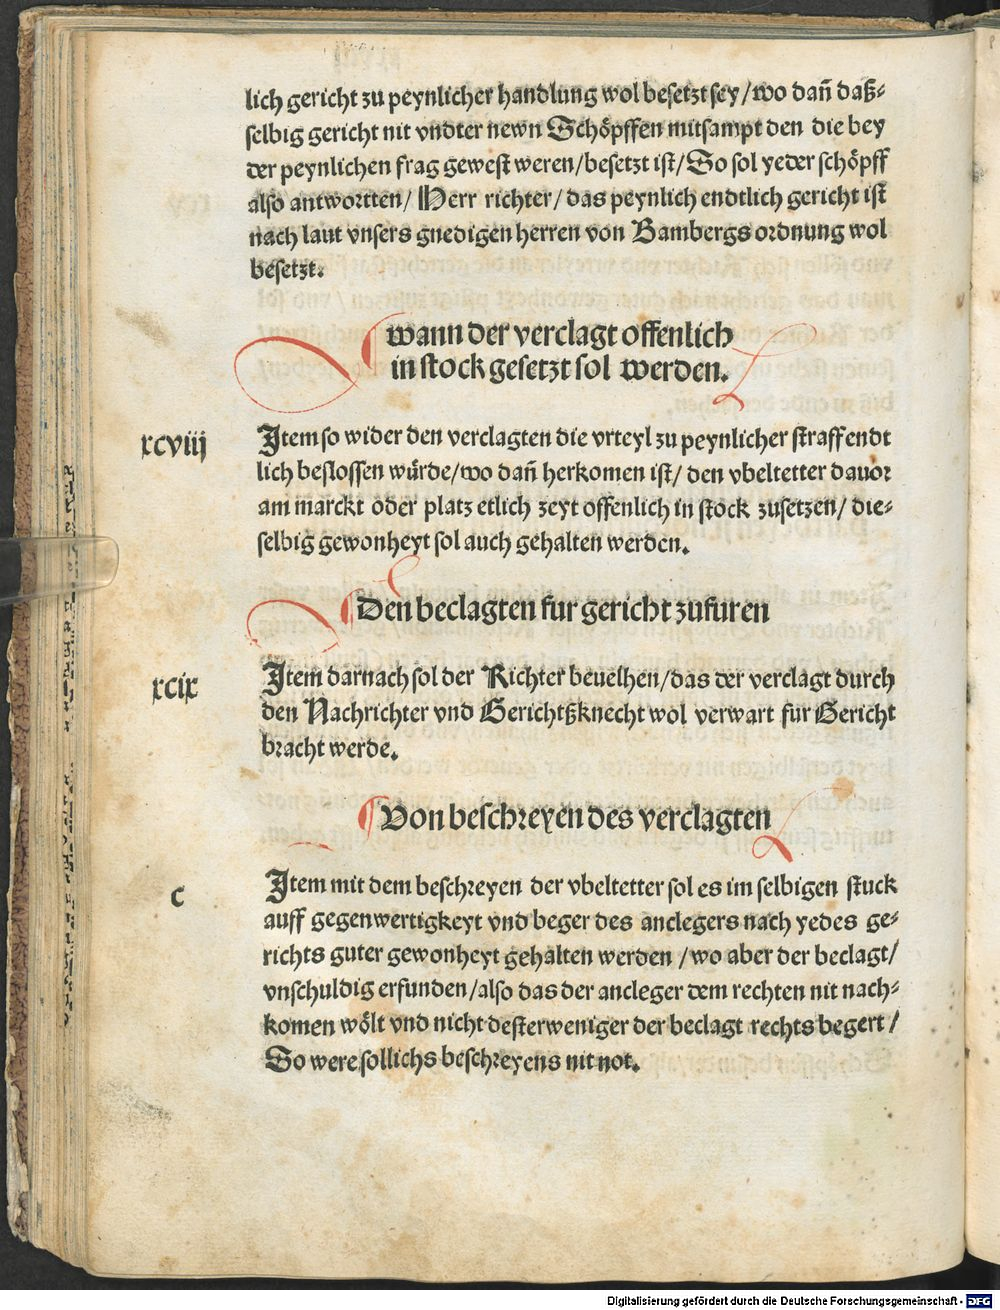 lich gericht zu peynlicher handlung wol besetzt sey/wo dañ daß-
selbig gericht nit vndter newn Schöpffen mitsampt den die bey
der peynlichen frag gewest weren/besetzt ist/So sol yeder schöpff
also antwortten/Herr richter/das peynlich endtlich gericht ist
nach laut vnsers gnedigen herren von Bambergs ordnung wol
besetzt.
wann der verclagt offenlich
in stock gesetzt sol werden.
xcviij
Item so wider den verclagten die vrteyl zu peynlicher straff endt
lich beslossen würde/wo dañ herkomen ist/den vbeltetter dauor
am marckt oder platz etlich zeyt offenlich in stock zusetzen/die-
selbig gewonheyt sol auch gehalten werden.
Den beclagten fur gericht zufuren
xcix
Item darnach sol der Richter beuelhen/das der verclagt durch
den Nachrichter vnd Gerichtßknecht wol verwart fur Gericht
bracht werde.
Von beschreyen des verclagten
c
Item mit dem beschreyen der vbeltetter sol es im selbigen stuck
auff gegenwertigkeyt vnd beger des anclegers nach yedes ge-
richts guter gewonheyt gehalten werden/wo aber der beclagt/
vnschuldig erfunden/also das der ancleger dem rechten nit nach-
komen wölt vnd nicht desterweniger der beclagt rechts begert/
So were sollichs beschreyens nit not.
Digitalisierung gefördert durch die Deutsche Forschungsgemeinschaft - DFG